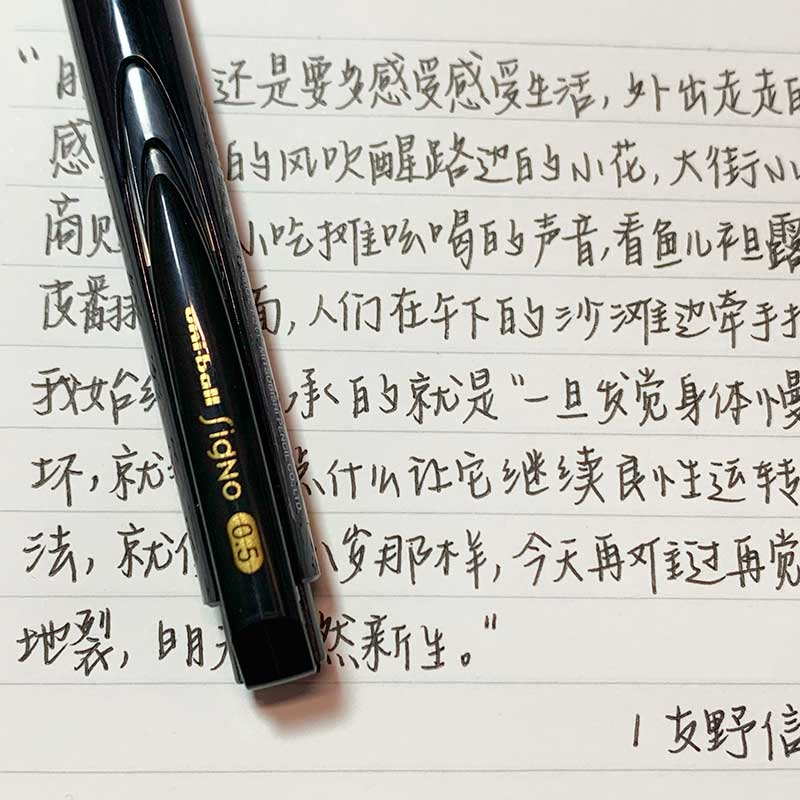 "明 还是要多感受感受生活，外出走走
感 的风吹醒路边的小花，大街小
商贩 小吃摊吆喝的声音，看鱼儿袒露
皮翻 面，人们在午下的沙滩边牵手
我始终 的就是"一旦发觉身体慢
坏，就 点什么让它继续良性运转
法，就 岁那样，今天再难过再觉
地裂，明天 然新生。"
| 友野信
uni-ball SigNO 0.5
MITSUBISHI PENCIL CO., LTD.